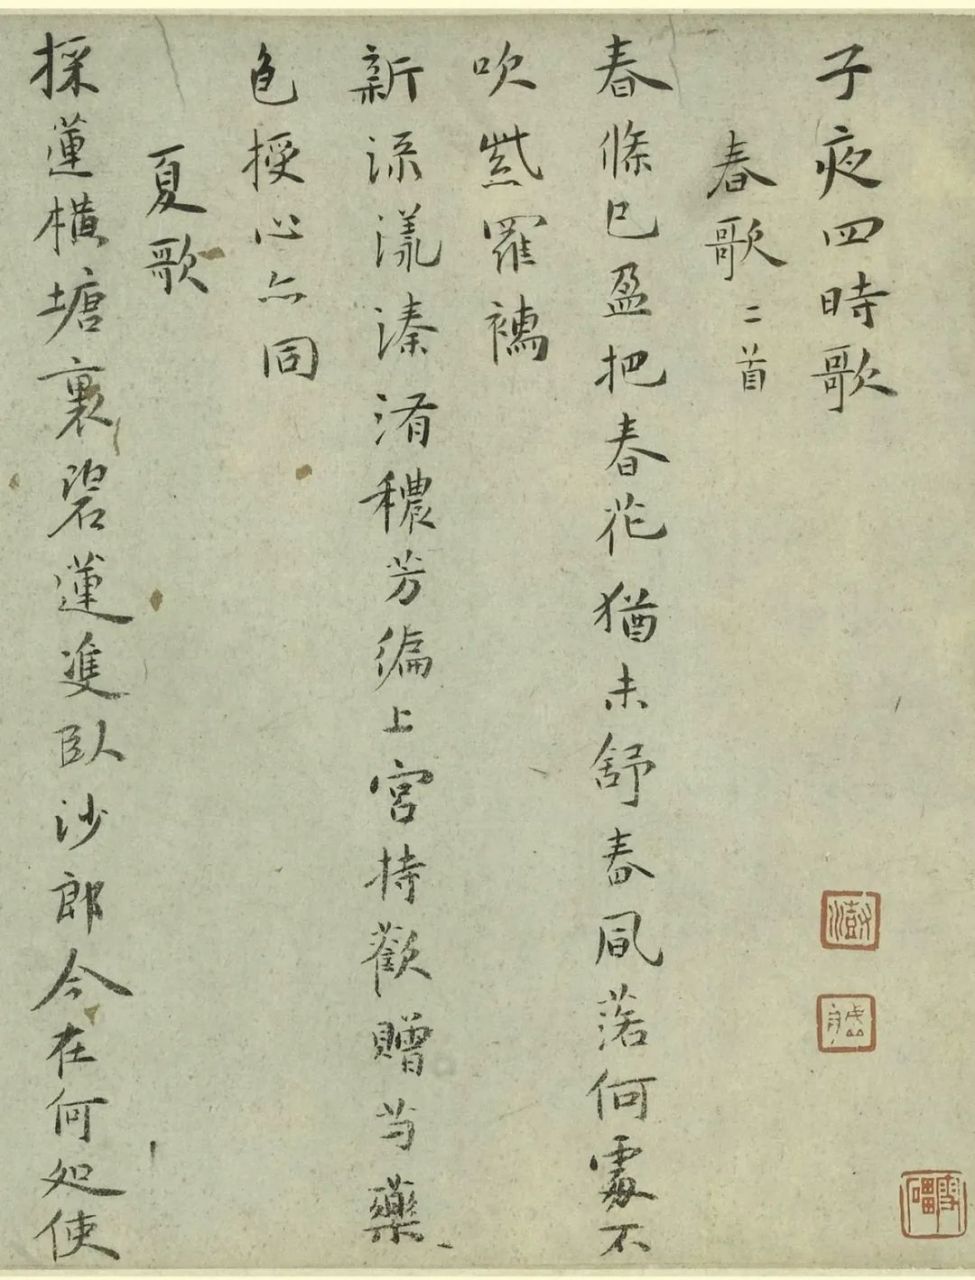 子夜四時歌
春歌二首
春條已盈把春花猶未舒春風落何處不
吹紫羅襦
新流漾溱洧穠芳徧上宮持歡贈芍藥
色授心亦同
夏歌
採蓮橫塘裏碧蓮雙臥沙郎今在何処使